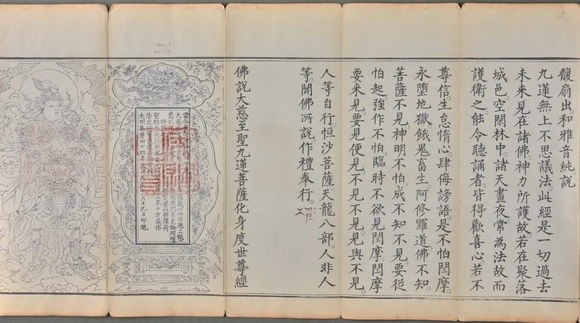 馥扇出和雅音純說
九蓮無上不思議法此經是一切過去
未來見在諸佛神力所護故若在聚落
城邑空閑林中諸天晝夜常為法故而
護衛之能令聽誦者皆得歡喜心若不
尊信生怠惰心肆侮謗語是不怕閻摩
永墮地獄餓鬼畜生阿修羅道佛不知
菩薩不見神明不怕成不知不見要從
怕起強作不怕臨時不欲見閻摩閻摩
要來見要見便見不見不見見與不見
人等自行恒沙菩薩天龍八部人非人
等聞佛所說作禮奉行
佛說大慈至聖九蓮菩薩化身度世尊經